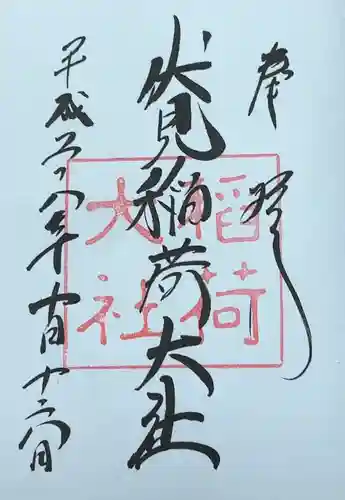 奉拝
伏見稲荷大社
平成二十八年十月十六日
稲荷
大社